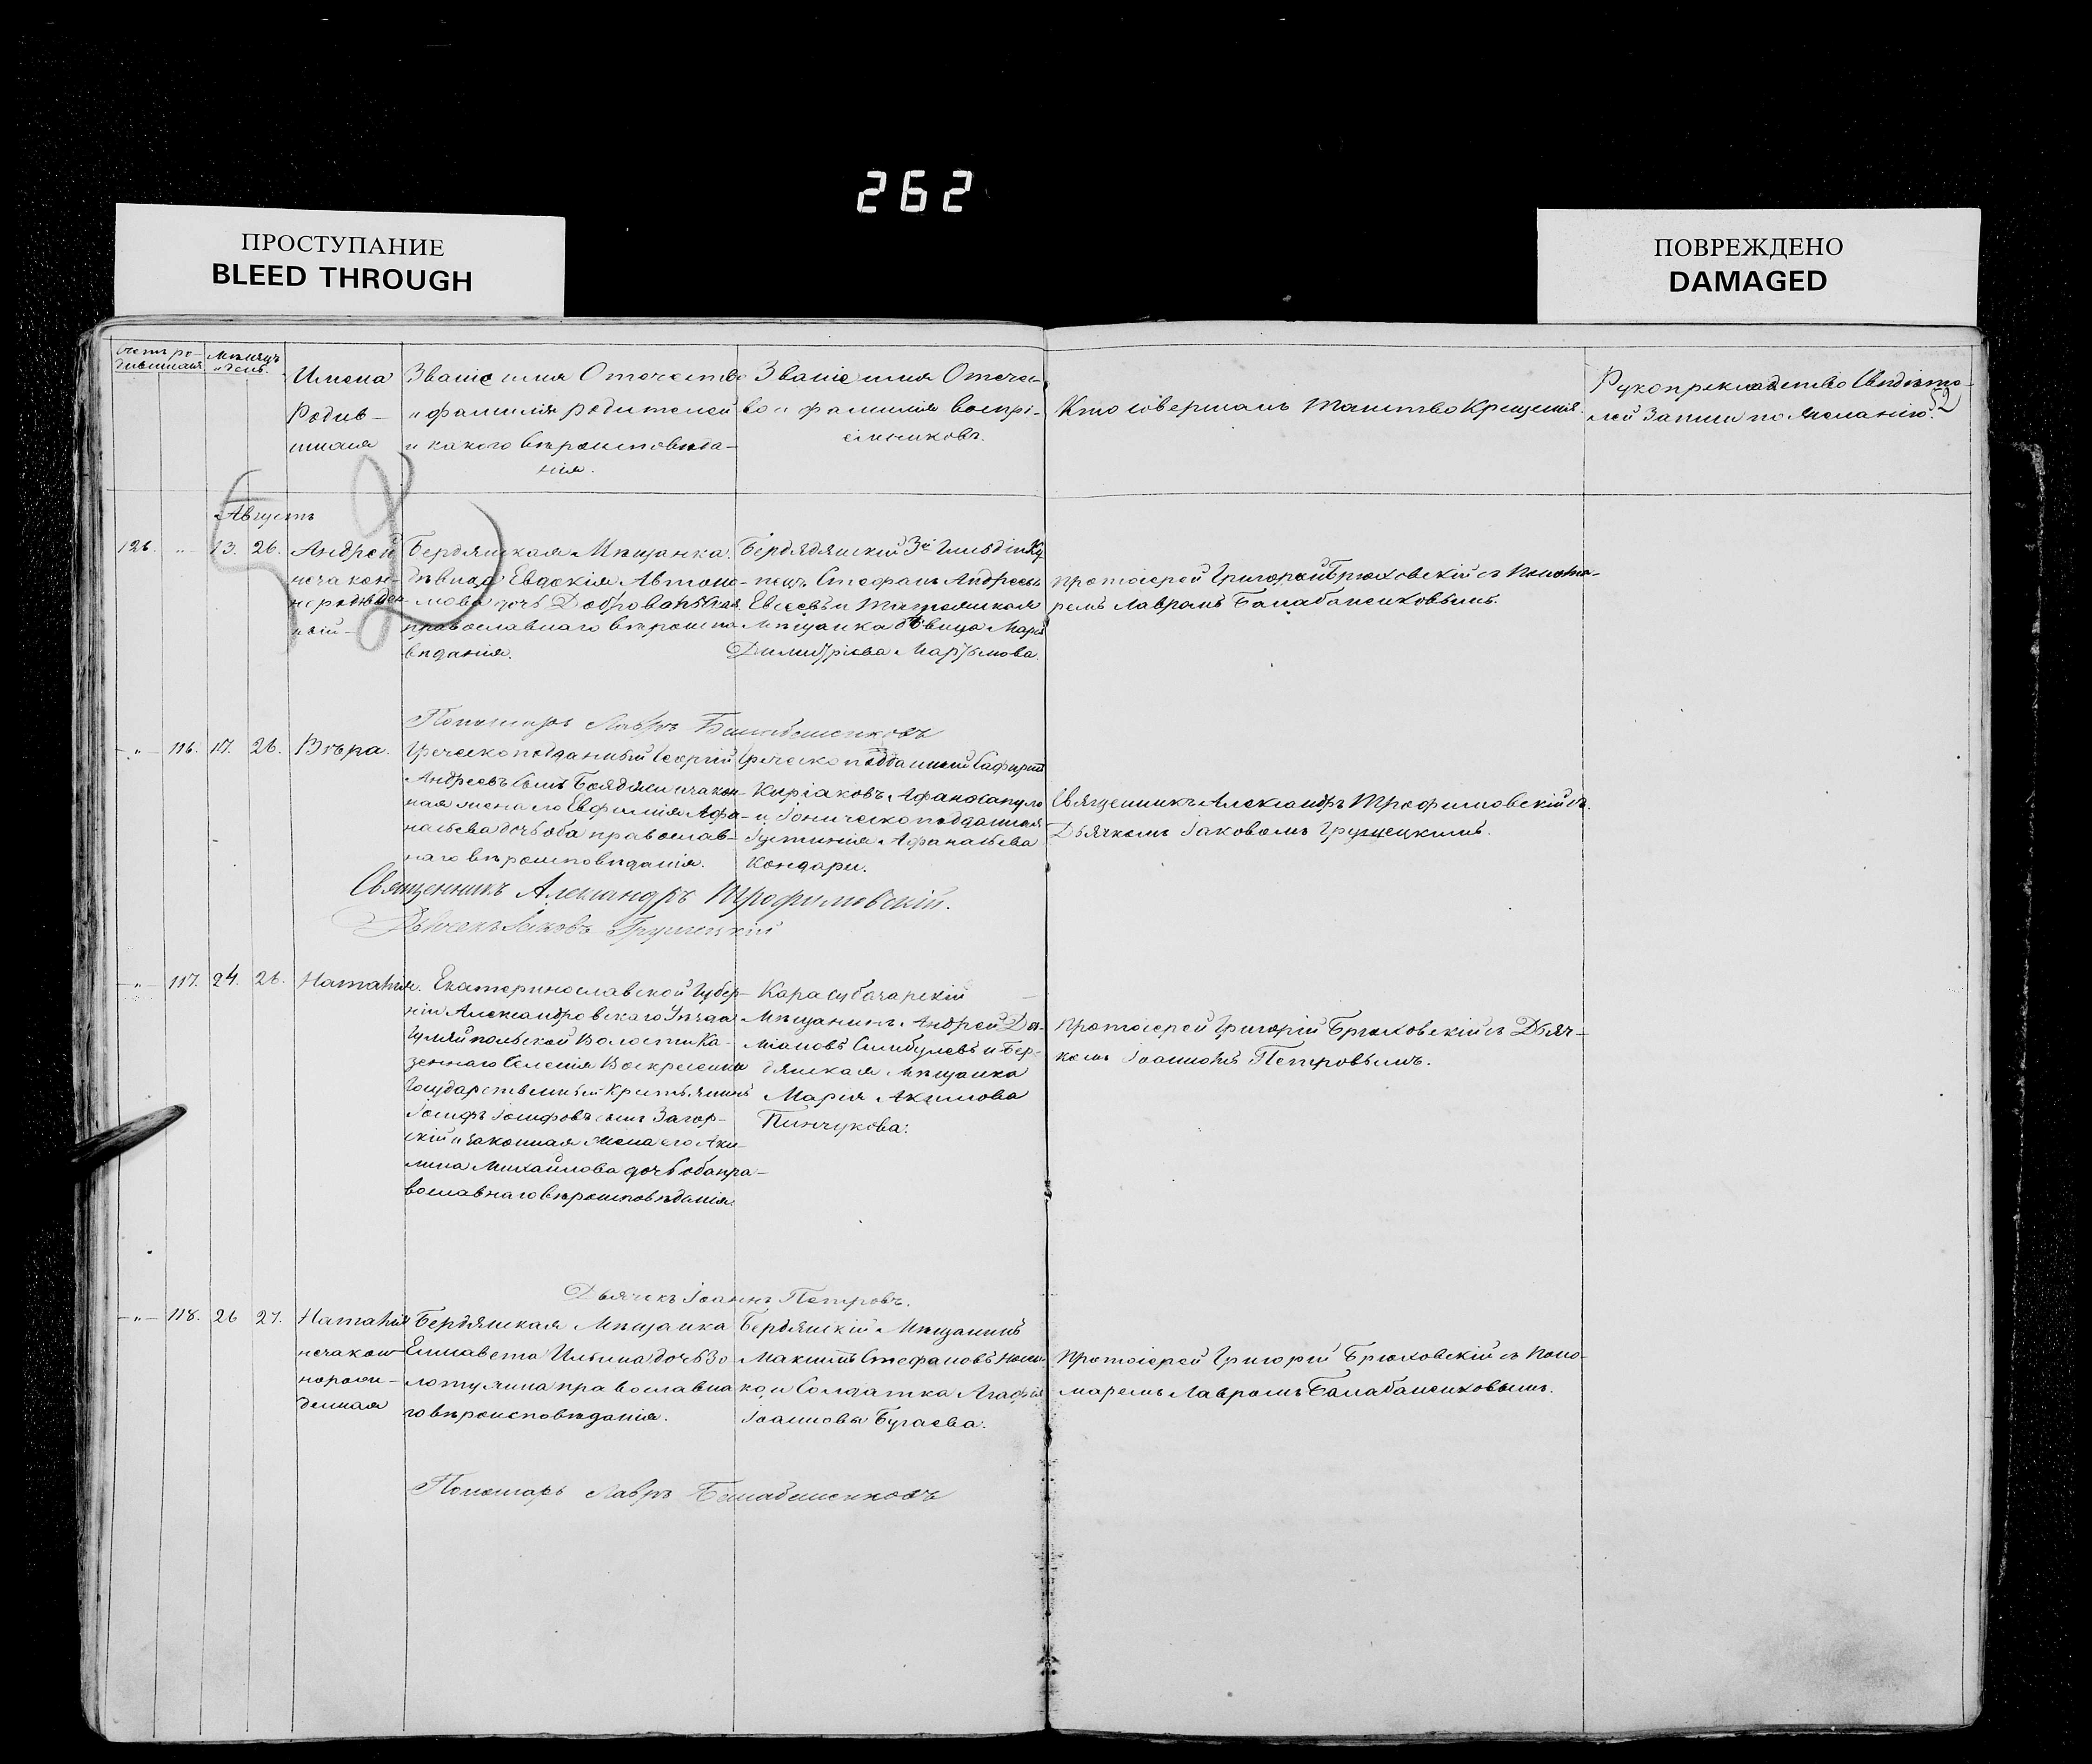 262
ПРОСТУПАНИЕ
BLEED THROUGH
ПОВРЕЖДЕНО
DAMAGED
52
Счетъ ро-
дившихся
Мѣсяцъ
и день.
Имена
Родив-
шихся
Званіе имя Отечество
и фамилія родителей
и какого вѣроисповѣда-
нія.
Званіе имя Отечест-
во и фамилія воспрі-
емниковъ.
Кто совершалъ таинство Крещенія
Рукоприкладство Свидѣте-
лей Записи по желанію.
Августъ
126. " 13. 26.
Андрей
незакон-
норожден-
ный
Бердянская Мѣщанка
дѣвица Евдокія Автоно-
мова дочь
православнаго вѣроиспо-
вѣданія.
Бердядянскій 3й Гильдіи Ку-
пецъ Стефанъ Андреевъ
Евсеевъ и
Мѣщанка дѣвица Марія
Димитріева Мартынова.
Протоіерей Григорій Брюховскій съ Понома-
ремъ Лавромъ Балабаненковымъ.
Пономарь Лавръ Балабаненковъ
" 116. 17. 26. Вѣра.
Греческоподданный Георгій
Андреевъ сынъ и закон-
ная жена его Евфимія Афа-
насьева дочь оба православ-
наго вѣроисповѣданія.
Греческоподданный
Киріаковъ Афанасапуло
и Іоническоподданная
Іустинія Афанасьева
Кондари.
Священникъ Александръ Трофимовскій съ
Дьячкомъ Іаковомъ Грушецкимъ.
Священникъ Александръ Трофимовскій.
Дьячекъ Іаковъ Грушецкій
" 117. 24. 26. Наталія.
Екатеринославской Губер-
ніи Александровскаго Уѣзда
Гуляйпольской Волости Ка-
зеннаго Селенія Воскресенки
Государственный Крестьянинъ
Іосифъ Іосифовъ сынъ Загор-
скій и законная жена его Аки-
лина Михайлова дочь оба пра-
вославнаго вѣроисповѣданія.
Карасубазарскій
Мѣщанинъ Андрей Да-
міановъ и Бер-
дянская Мѣщанка
Марія Акимова
Пинчукова.
Протоіерей Григорій Брюховскій съ Дьяч-
комъ Іоанномъ Петровымъ.
Дьячекъ Іоаннъ Петровъ.
" 118. 26 27. Наталія
незакон-
норож-
денная
Бердянская Мѣщанка
Елисавета Ильина дочь Зо-
лотухина православна-
го вѣроисповѣданія.
Бердянскій Мѣщанинъ
Максимъ Стефановъ
и Солдатка Агафія
Іоаннова Бугаева.
Протоіерей Григорій Брюховскій съ Поно-
маремъ Лавромъ Балабаненковымъ.
Пономарь Лавръ Балабаненковъ